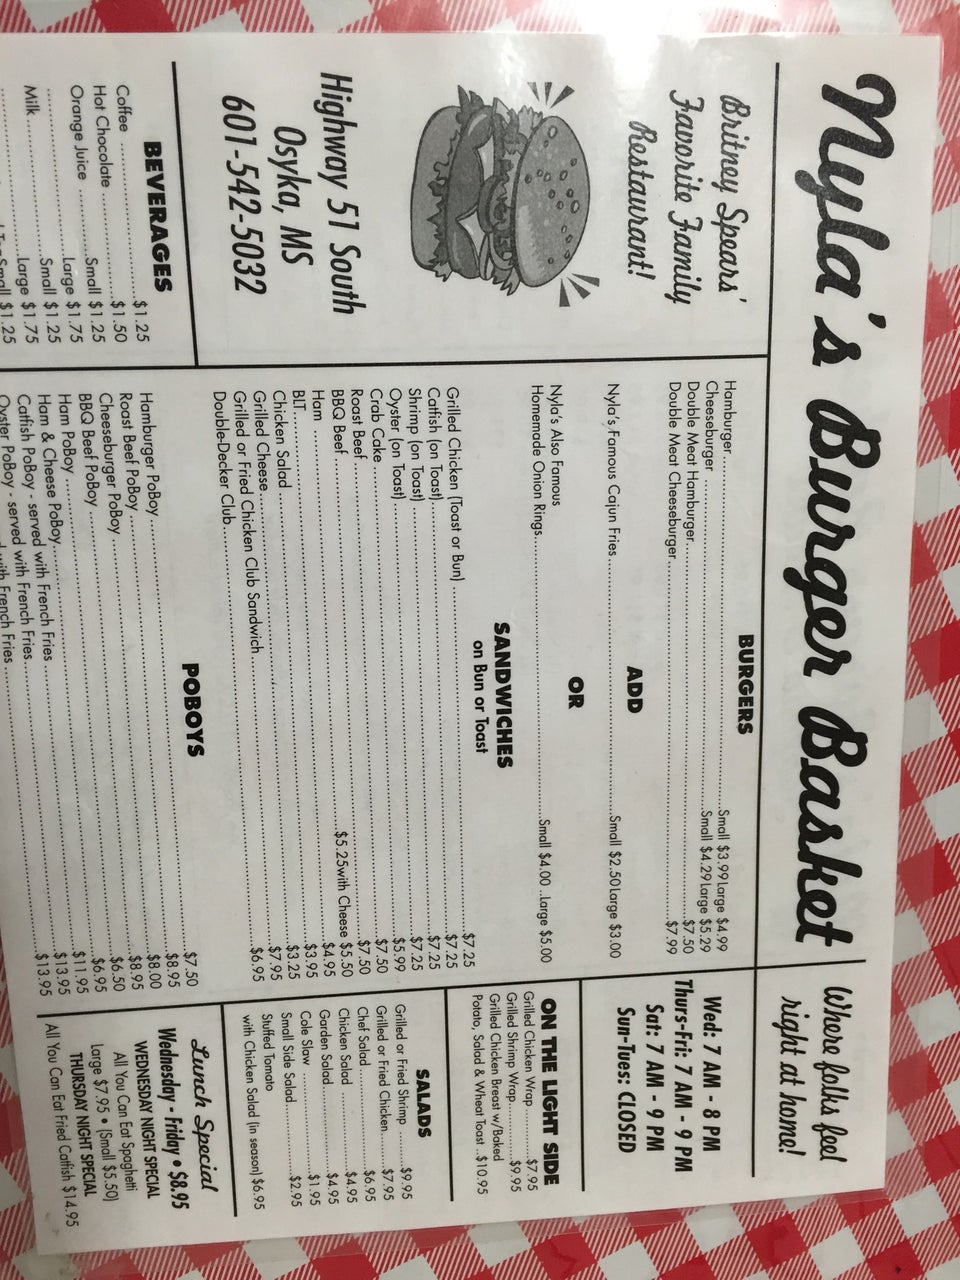 Nyla's Burger Basket
Where folks feel
right at home!
Britney Spears'
Favorite Family
Restaurant!
Highway 51 South
Osyka, MS
601-542-5032
BEVERAGES
Coffee ........ $1.25
Hot Chocolate ........ $1.50
Orange Juice ........ Small $1.25
........ Large $1.75
Milk ........ Small $1.25
........ Large $1.75
Small $1.25
BURGERS
Hamburger ........ Small $3.99 Large $4.99
Cheeseburger ........ Small $4.29 Large $5.29
Double Meat Hamburger ........ $7.50
Double Meat Cheeseburger ........ $7.99
ADD
Nyla's Famous Cajun Fries ........ Small $2.50 Large $3.00
OR
Nyla's Also Famous
Homemade Onion Rings ........ Small $4.00 ..Large $5.00
SANDWICHES
on Bun or Toast
Grilled Chicken (Toast or Bun) ........ $7.25
Catfish (on Toast) ........ $7.25
Shrimp (on Toast) ........ $7.25
Oyster (on Toast) ........ $7.25
Crab Cake ........ $5.99
Roast Beef ........ $7.50
BBQ Beef ........ $7.50
Ham ........ $5.25with Cheese $5.50
BLT ........ $4.95
Chicken Salad ........ $3.95
Grilled Cheese ........ $3.25
Grilled or Fried Chicken Club Sandwich ........ $7.95
Double-Decker Club ........ $6.95
POBOYS
Hamburger PoBoy ........ $7.50
Roast Beef PoBoy ........ $8.95
Cheeseburger PoBoy ........ $8.00
BBQ Beef PoBoy ........ $8.95
Ham PoBoy ........ $6.50
Ham & Cheese PoBoy ........ $6.95
Catfish PoBoy - served with French Fries ........ $11.95
Oyster PoBoy - served with French Fries ........ $13.95
with French Fries ........ $13.95
Wed: 7 AM - 8 PM
Thurs-Fri: 7 AM - 9 PM
Sat: 7 AM - 9 PM
Sun-Tues: CLOSED
ON THE LIGHT SIDE
Grilled Chicken Wrap ........ $7.95
Grilled Shrimp Wrap ........ $9.95
Grilled Chicken Breast w/Baked
Potato, Salad & Wheat Toast ..$10.95
SALADS
Grilled or Fried Shrimp ........ $9.95
Grilled or Fried Chicken ........ $7.95
Chef Salad ........ $6.95
Chicken Salad ........ $4.95
Garden Salad ........ $4.95
Cole Slaw ........ $1.95
Small Side Salad ........ $2.95
Stuffed Tomato
with Chicken Salad (in season) $6.95
Lunch Special
Wednesday - Friday • $8.95
WEDNESDAY NIGHT SPECIAL
All You Can Eat Spaghetti
Large $7.95 • (Small $5.50)
THURSDAY NIGHT SPECIAL
All You Can Eat Fried Catfish $14.95